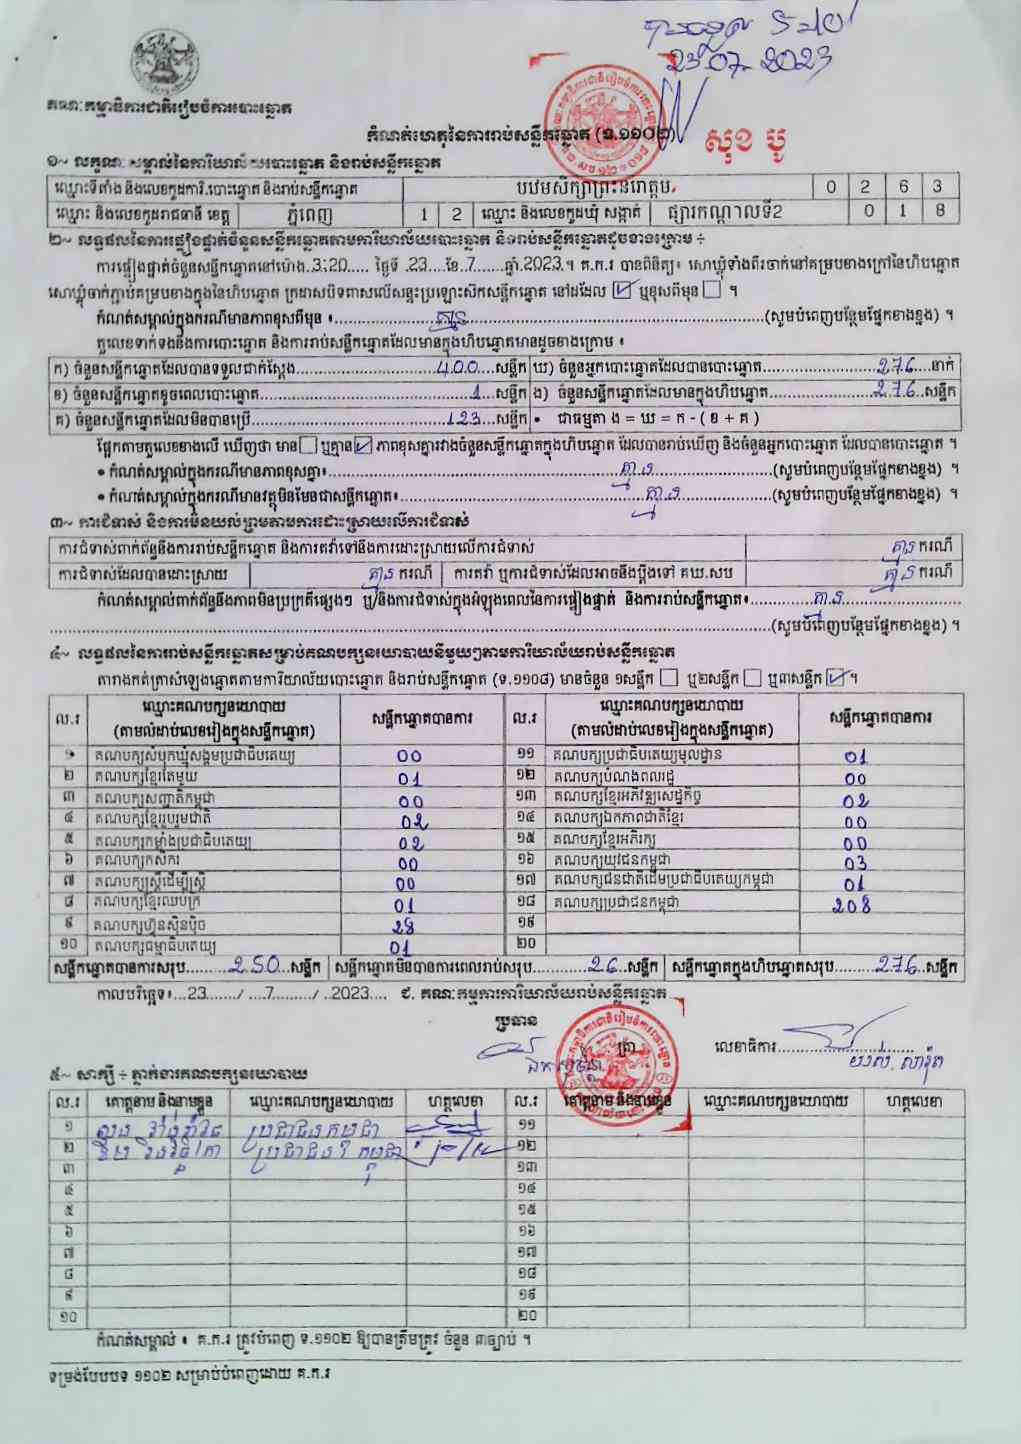 23.07.2023
គណៈកម្មាធិការជាតិរៀបចំការបោះឆ្នោត
កំណត់ហេតុនៃការរាប់សន្លឹកឆ្នោត (ទ.១១០២)
សុខ បូ
១~ លក្ខណៈសម្គាល់នៃការិយាល័យបោះឆ្នោត និងរាប់សន្លឹកឆ្នោត
ឈ្មោះទីតាំង និងលេខកូដការិ.បោះឆ្នោត និងរាប់សន្លឹកឆ្នោត បឋមសិក្សាព្រះនរោត្តម 0 2 6 3
ឈ្មោះ និងលេខកូដរាជធានី ខេត្ត ភ្នំពេញ 1 2 ឈ្មោះ និងលេខកូដឃុំ សង្កាត់ ផ្សារកណ្តាលទី2 0 1 8
២~ លទ្ធផលនៃការផ្ទៀងផ្ទាត់ចំនួនសន្លឹកឆ្នោតតាមការិយាល័យបោះឆ្នោត និងរាប់សន្លឹកឆ្នោតដូចខាងក្រោម ÷
ការផ្ទៀងផ្ទាត់ចំនួនសន្លឹកឆ្នោតនៅម៉ោង.3:20..... ថ្ងៃទី .23....ខែ.7.......ឆ្នាំ.2023.។ គ.ក.រ បានពិនិត្យ៖ សោឃ្លុំទាំងពីរចាក់នៅគម្របខាងក្រៅនៃហិបឆ្នោត
សោឃ្លុំចាក់ភ្ជាប់គម្របខាងក្នុងនៃហិបឆ្នោត ក្រដាសបិទពាសលើសន្ទះប្រឡោះស៊កសន្លឹកឆ្នោត នៅដដែល ☑ ឬខុសពីមុន ☐ ។
កំណត់សម្គាល់ក្នុងករណីមានភាពខុសពីមុន ៖ គ្មាន (សូមបំពេញបន្ថែមផ្នែកខាងខ្នង) ។
តួលេខទាក់ទងនឹងការបោះឆ្នោត និងការរាប់សន្លឹកឆ្នោតដែលមានក្នុងហិបឆ្នោតមានដូចខាងក្រោម ៖
ក) ចំនួនសន្លឹកឆ្នោតដែលបានទទួលជាក់ស្តែង 400 សន្លឹក ឃ) ចំនួនអ្នកបោះឆ្នោតដែលបានបោះឆ្នោត 276 នាក់
ខ) ចំនួនសន្លឹកឆ្នោតខូចពេលបោះឆ្នោត 1 សន្លឹក ង) ចំនួនសន្លឹកឆ្នោតដែលមានក្នុងហិបឆ្នោត 276 សន្លឹក
គ) ចំនួនសន្លឹកឆ្នោតដែលមិនបានប្រើ 123 សន្លឹក • ជាធម្មតា ង = ឃ = ក - ( ខ + គ )
ផ្អែកតាមតួលេខខាងលើ ឃើញថា មាន ☐ ឬគ្មាន ☑ ភាពខុសគ្នារវាងចំនួនសន្លឹកឆ្នោតក្នុងហិបឆ្នោត ដែលបានរាប់ឃើញ និងចំនួនអ្នកបោះឆ្នោត ដែលបានបោះឆ្នោត ។
• កំណត់សម្គាល់ក្នុងករណីមានភាពខុសគ្នា៖ គ្មាន (សូមបំពេញបន្ថែមផ្នែកខាងខ្នង) ។
• កំណត់សម្គាល់ក្នុងករណីមានវត្ថុមិនមែនជាសន្លឹកឆ្នោត៖ គ្មាន (សូមបំពេញបន្ថែមផ្នែកខាងខ្នង) ។
៣~ ការជំទាស់ និងការមិនយល់ព្រមតាមការដោះស្រាយលើការជំទាស់
ការជំទាស់ពាក់ព័ន្ធនឹងការរាប់សន្លឹកឆ្នោត និងការតវ៉ាទៅនឹងការដោះស្រាយលើការជំទាស់ គ្មាន ករណី
ការជំទាស់ដែលបានដោះស្រាយ គ្មាន ករណី ការតវ៉ា ឬការជំទាស់ដែលអាចនឹងប្តឹងទៅ គឃ.សប គ្មាន ករណី
កំណត់សម្គាល់ពាក់ព័ន្ធនឹងភាពមិនប្រក្រតីផ្សេងៗ ឬ/និងការជំទាស់ក្នុងអំឡុងពេលនៃការផ្ទៀងផ្ទាត់ និងការរាប់សន្លឹកឆ្នោត៖ គ្មាន
(សូមបំពេញបន្ថែមផ្នែកខាងខ្នង) ។
៤~ លទ្ធផលនៃការរាប់សន្លឹកឆ្នោតសម្រាប់គណបក្សនយោបាយនីមួយៗតាមការិយាល័យរាប់សន្លឹកឆ្នោត
តារាងកត់ត្រាសំឡេងឆ្នោតតាមការិយាល័យបោះឆ្នោត និងរាប់សន្លឹកឆ្នោត (ទ.១១០៨) មានចំនួន ១សន្លឹក ☐ ឬ២សន្លឹក ☐ ឬ៣សន្លឹក ☑ ។
ល.រ ឈ្មោះគណបក្សនយោបាយ (តាមលំដាប់លេខរៀងក្នុងសន្លឹកឆ្នោត) សន្លឹកឆ្នោតបានការ ល.រ ឈ្មោះគណបក្សនយោបាយ (តាមលំដាប់លេខរៀងក្នុងសន្លឹកឆ្នោត) សន្លឹកឆ្នោតបានការ
១ គណបក្សសំបុកឃ្មុំសង្គមប្រជាធិបតេយ្យ 00 ១១ គណបក្សប្រជាធិបតេយ្យមូលដ្ឋាន 01
២ គណបក្សខ្មែរតែមួយ 01 ១២ គណបក្សបំណងពលរដ្ឋ 00
៣ គណបក្សសញ្ជាតិកម្ពុជា 00 ១៣ គណបក្សខ្មែរអភិវឌ្ឍសេដ្ឋកិច្ច 02
៤ គណបក្សខ្មែររួបរួមជាតិ 02 ១៤ គណបក្សឯកភាពជាតិខ្មែរ 00
៥ គណបក្សកម្លាំងប្រជាធិបតេយ្យ 02 ១៥ គណបក្សខ្មែរអភិរក្ស 00
៦ គណបក្សកសិករ 00 ១៦ គណបក្សយុវជនកម្ពុជា 03
៧ គណបក្សស្ត្រីដើម្បីស្ត្រី 00 ១៧ គណបក្សជនជាតិដើមប្រជាធិបតេយ្យកម្ពុជា 01
៨ គណបក្សខ្មែរឈប់ក្រ 01 ១៨ គណបក្សប្រជាជនកម្ពុជា 208
៩ គណបក្សហ្វ៊ុនស៊ិនប៉ិច 28 ១៩
១០ គណបក្សធម្មាធិបតេយ្យ 01 ២០
សន្លឹកឆ្នោតបានការសរុប 250 សន្លឹក សន្លឹកឆ្នោតមិនបានការពេលរាប់សរុប 26 សន្លឹក សន្លឹកឆ្នោតក្នុងហិបឆ្នោតសរុប 276 សន្លឹក
កាលបរិច្ឆេទ៖ 23 / 7 / 2023 ជ. គណៈកម្មការការិយាល័យរាប់សន្លឹកឆ្នោត
ប្រធាន
ត្រា លេខាធិការ
៥~ សាក្សី ÷ ភ្នាក់ងារគណបក្សនយោបាយ
ល.រ គោត្តនាម និងនាមខ្លួន ឈ្មោះគណបក្សនយោបាយ ហត្ថលេខា ល.រ គោត្តនាម និងនាមខ្លួន ឈ្មោះគណបក្សនយោបាយ ហត្ថលេខា
១ ប្រជាជនកម្ពុជា ១១
២ ប្រជាជនកម្ពុជា ១២
៣ ១៣
៤ ១៤
៥ ១៥
៦ ១៦
៧ ១៧
៨ ១៨
៩ ១៩
១០ ២០
កំណត់សម្គាល់ ៖ គ.ក.រ ត្រូវបំពេញ ទ.១១០២ ឱ្យបានត្រឹមត្រូវ ចំនួន ៣ច្បាប់ ។
ទម្រង់បែបបទ ១១០២ សម្រាប់បំពេញដោយ គ.ក.រ